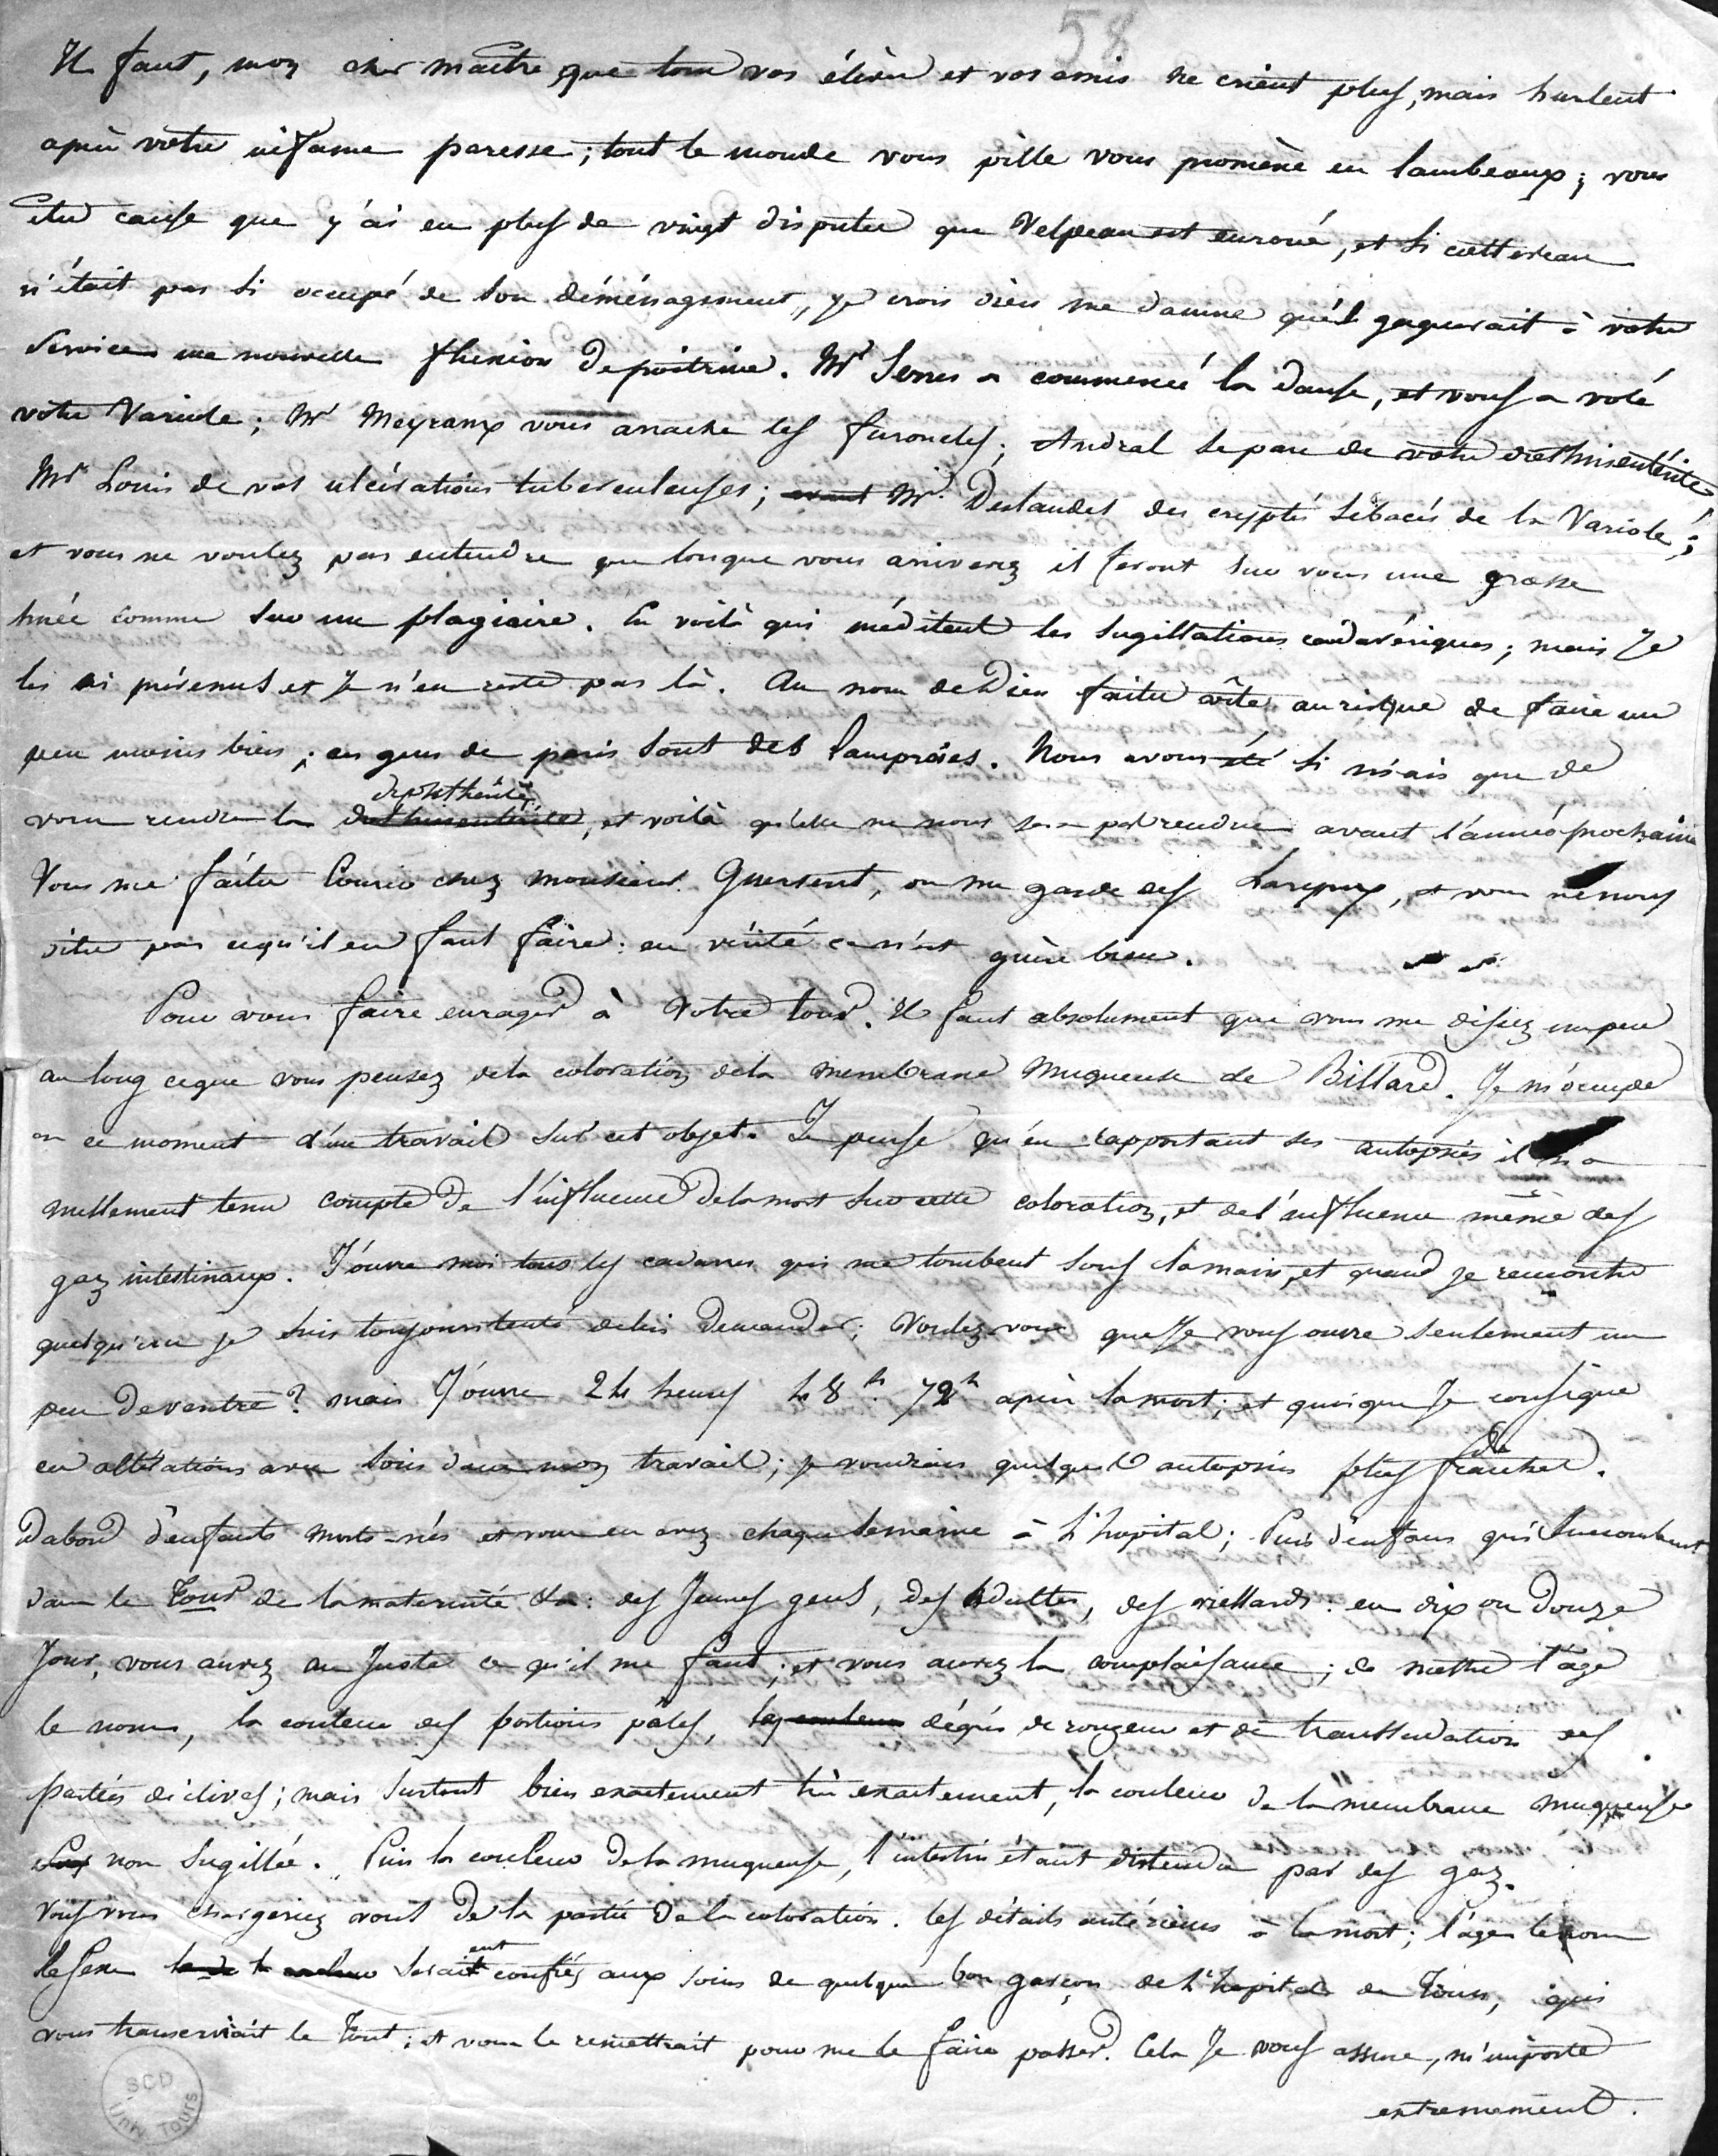 58
Il faut, mon cher maitre que tous vos élèves et vos amis ne crient plus, mais hurlent
après votre infame paresse ; tout le monde vous pille vous promène en lambeaux ; vous
etes cause que j'ai eu plus de vingt disputes que Velpeau est enroué, et si cottereau
n'était pas si occupé de son déménagement, je crois dieu me damne qu'il gagnerait à votre
service une nouvelle fluxion de poitrine. Mr Serres a commencé la danse, et vous a volé
votre Variole ; Mr Meyranx vous arrache les furoncles ; Andral se pare de votre dothinentérite
Mr Louis de vos ulcérations tuberculeuses ; Mr Deslandes des cryptes sébacés de la Variole ;
et vous ne voulez pas entendre que lorsque vous arriverez il feront sur vous une grosse
huée comme sur un plagiaire. En voilà qui méditent les sugillations cadavériques ; mais Je
les ai prévenus et Je n'en reste pas là. Au nom de Dieu faites vite au risque de faire un
peu moins bien ; ces gens de paris sont des lamproies. Nous avons été si niais que de
vous rendre la diphthérite dothinentérite, et voilà qu'elle ne nous sera pas rendue avant l'année prochaine
Vous me faites Courir chez monsieur Guersent, on me garde des Larynx, et vous ne nous
dites pas ce qu'il en faut faire : en vérité ce n'est guère bien.
Pour vous faire enrager à Votre tour. Il faut absolument que vous me disiez un peu
au long ce que vous pensez de la coloration de la membrane muqueuse de Billard. Je m'occupe
en ce moment d'un travail sur cet objet. Je pense qu'en rapportant ses autopsies il n'a
nullement tenu compte de l'influence de la mort sur cette coloration, et de l'influence même des
gaz intestinaux. J'ouvre moi tous les cadavres qui me tombent sous la main, et quand je rencontre
quelqu'un je suis toujours tenté de lui demander ; Voulez-vous que Je vous ouvre seulement un
peu de ventre ? mais J'ouvre 24 heures 48 h. 72 h après la mort ; et quoique Je consigne
ces altérations avec soin dans mon travail ; je voudrais quelques autopsies plus fraiches.
Dabord d'enfants morts-nés et vous en avez chaque semaine à L'hopital ; Puis d'enfans qui succombent
dans le Tour de la maternité &a : des Jeunes gens, des Adultes, des viellards : en dix ou douze
Jours, vous aurez au Juste ce qu'il me faut ; et vous aurez la complaisance ; de mettre l'age
le nom, la couleur des portions pâles, les couleurs dégrés de rougeur et de transsudation des
parties déclives ; mais surtout bien exactement très exactement, la couleur de la membrane muqueuse
non sugillée. Puis la couleur de la muqueuse, l'intestin étant distendu par des gaz.
Vous vous chargeriez vous de la partie de la coloration. Les détails antérieurs à la mort ; l'age le nom
le sexe seraient confiés aux soins de quelque bon garçon de L'hopital de Tours, qui
vous transcrirait le Tout ; et vous le remettrait pour me le faire passer. Cela Je vous assure, m'importe
extremement.
SCD
Univ Tours